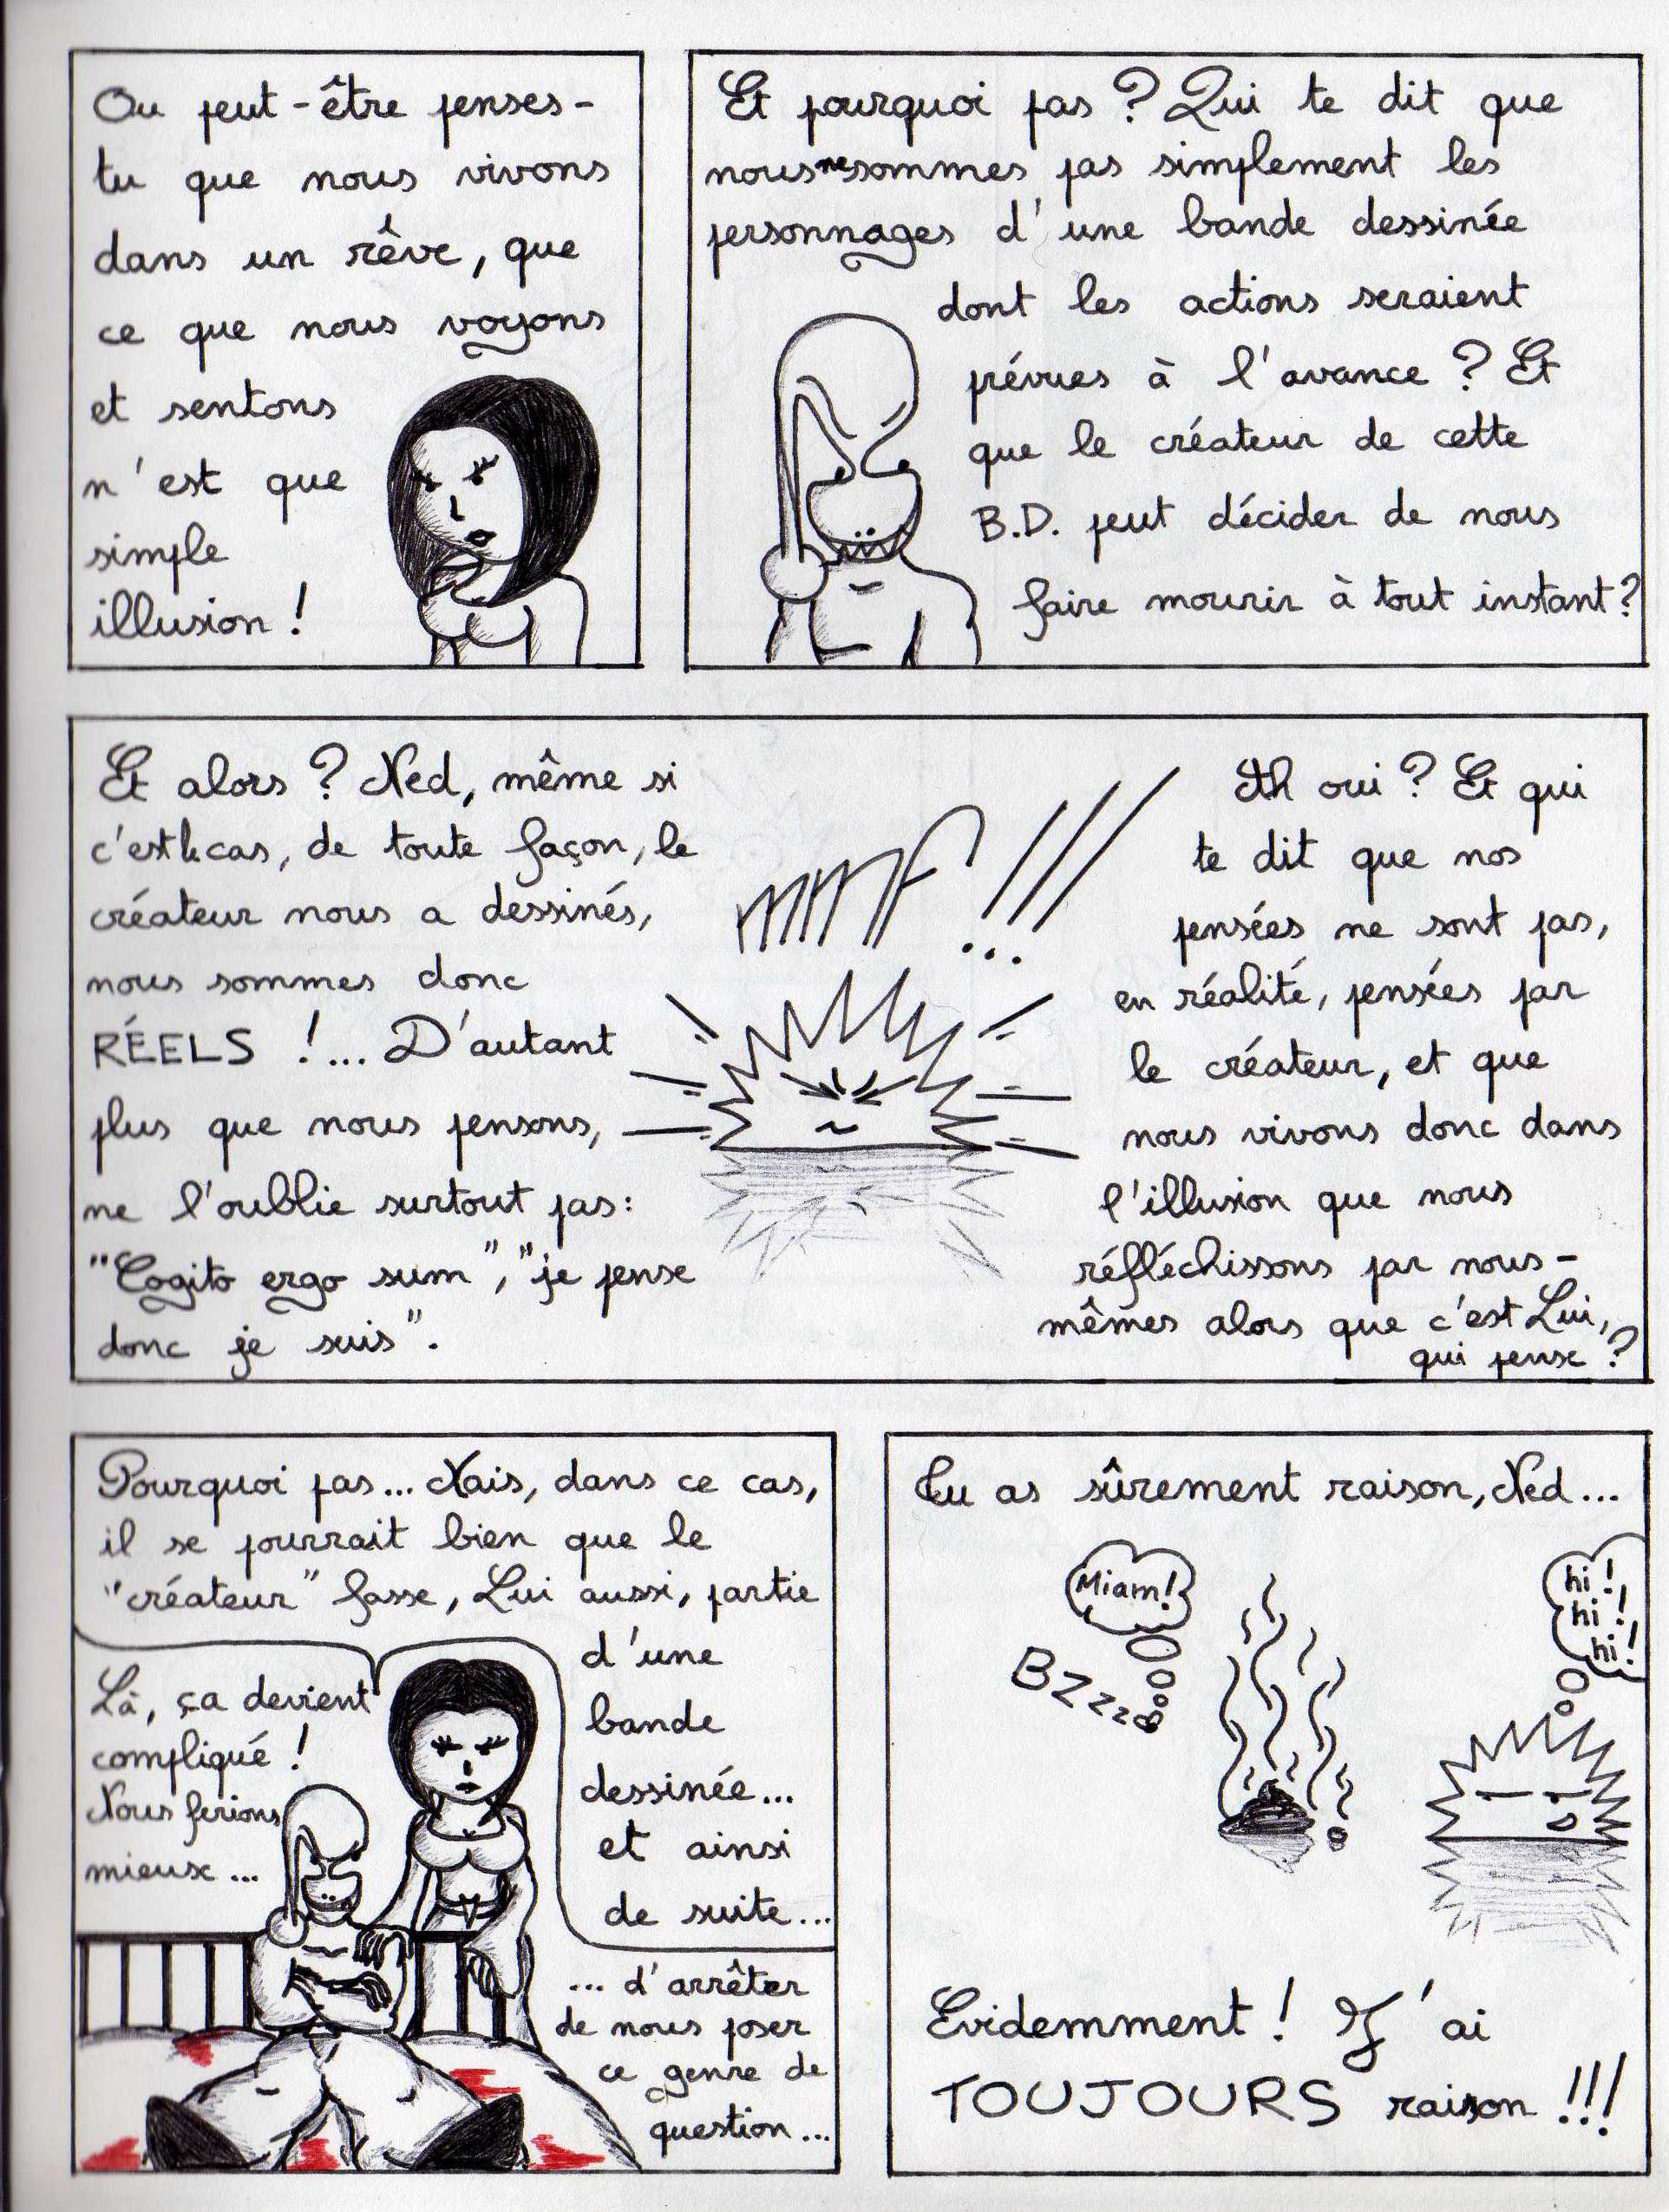 Ou peut-être penses-
tu que nous vivons
dans un rêve, que
ce que nous voyons
et sentons
n'est que
simple
illusion !
Et pourquoi pas ? Qui te dit que
nous ne sommes pas simplement les
personnages d'une bande dessinée
dont les actions seraient
prévues à l'avance ? Et
que le créateur de cette
B.D. peut décider de nous
faire mourir à tout instant ?
Et alors ? Ned, même si
c'est le cas, de toute façon, le
créateur nous a dessinés,
nous sommes donc
RÉELS !... D'autant
plus que nous pensons,
ne l'oublie surtout pas :
"Cogito ergo sum", "je pense
donc je suis".
MMF !!!
Ah oui ? Et qui
te dit que nos
pensées ne sont pas,
en réalité, pensées par
le créateur, et que
nous vivons donc dans
l'illusion que nous
réfléchissons par nous-
mêmes alors que c'est Lui,
qui pense ?
Pourquoi pas... Mais, dans ce cas,
il se pourrait bien que le
"créateur" fasse, Lui aussi, partie
d'une
bande
dessinée...
et ainsi
de suite...
Là, ça devient
compliqué !
Nous ferions
mieux...
... d'arrêter
de nous poser
ce genre de
question...
Tu as sûrement raison, Ned...
Miam !
BZzzz
hi !
hi !
hi !
Evidemment ! J'ai
TOUJOURS raison !!!